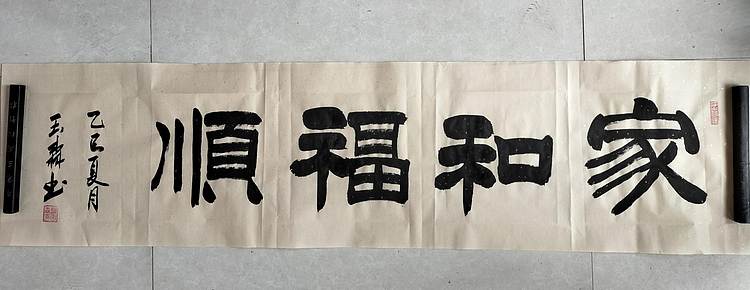 家和福順
乙巳夏月
玉森书